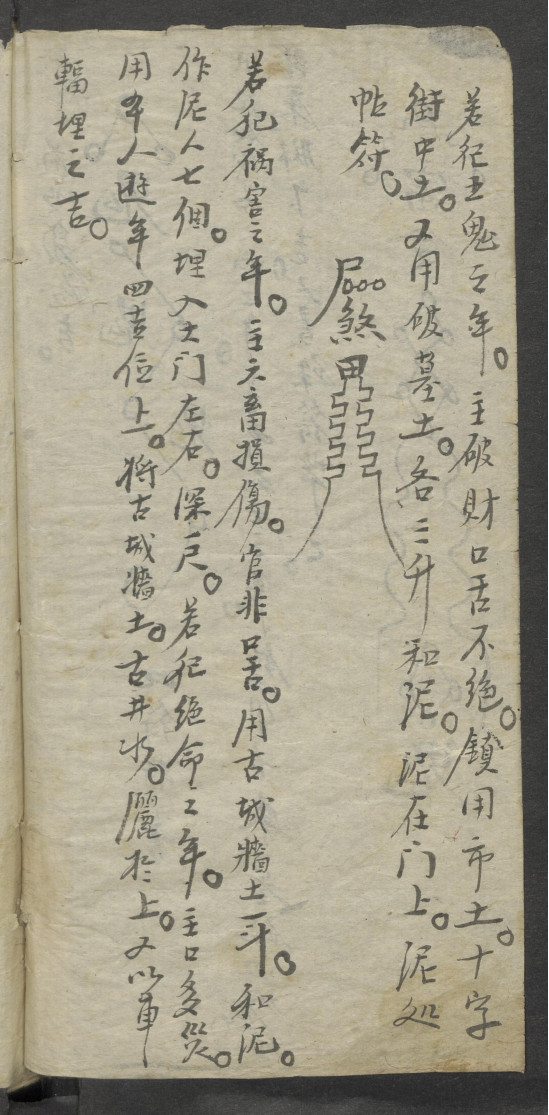 若犯五鬼之年。主破財口舌不绝。鎮用市土。十字
街中土。又用破墓土。各二升和泥。泥在门上。泥处
帖符。
煞
若犯禍害之年。主六畜損傷。官非口舌。用古城牆土一斗。和泥。
作泥人七個。埋入大门左右。深一尺。若犯绝命之年。主口多災。
用人遊年四吉位上。將古城牆土。古井水。灑於上。又以車
輻埋之吉。